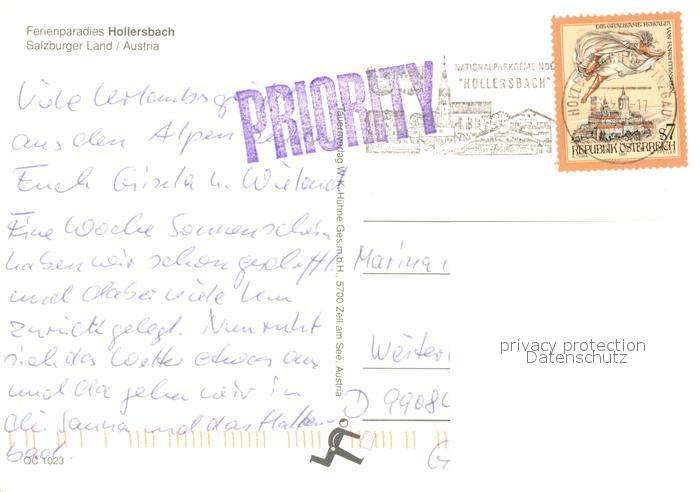 Ferienparadies Hollersbach
Salzburger Land / Austria
Viele Urlaubsgrüße
aus den Alpen
Euch Gisela u. Wieland
Eine Woche Sonnenschein
haben wir schon geschafft
und dabei viele km
zurückgelegt. Nun ruht
sich das Wetter etwas aus
und da gehen wir in
die Sauna und das Hallen-
bad.
OC 1023
PRIORITY
Tauernverlag W. K. Hühne Ges.m.b.H., 5700 Zell am See, Austria
NATIONALPARKGEMEINDE
"HOLLERSBACH"
DIE GRAUSAME ROSALIA
VON FORCHTENSTEIN
S7
REPUBLIK ÖSTERREICH
Marina
D 99084
privacy protection
Datenschutz